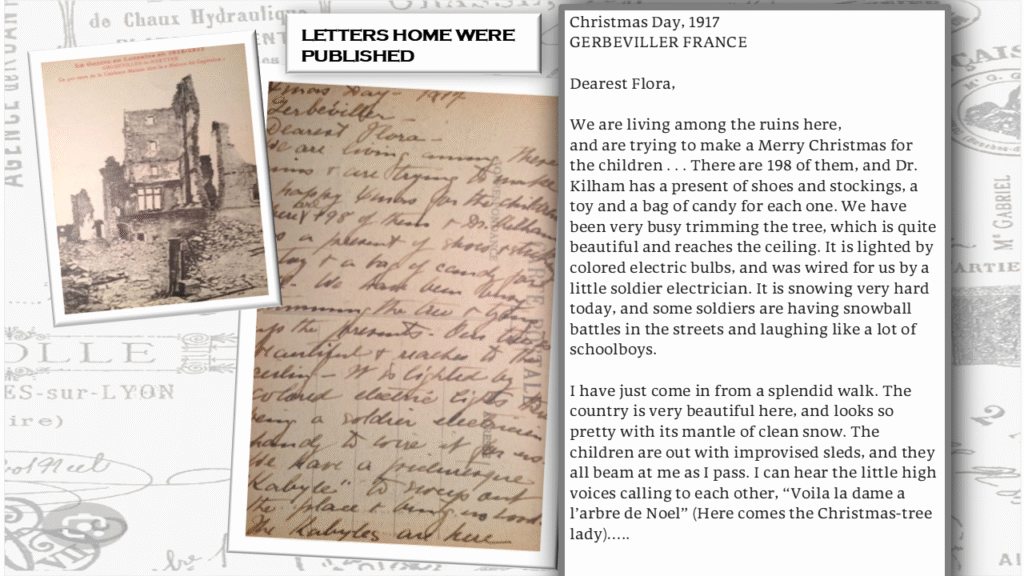 LETTERS HOME WERE
PUBLISHED
de Chaux Hydraulique
AGENCE
OLLE
ES-sur-LYON
ire)
Mᵉ GABRIEL
La Guerre en Lorraine en
Xmas Day - 1917
Gerbeviller -
Dearest Flora -
We are living among these
ruins & are trying to make
happy Xmas for the children
198 of them & Dr. Kilham
a present of shoes & stock
toy & a bag of candy for
We have been busy
trimming the tree &
up the presents. Our tree is
beautiful & reaches to the
ceilin - It is lighted by
colored electric lights there
being a soldier electrician
handy to wire it for us.
We have a picturesque
"Kabyle" to sweep out
the place & bring us wood
The Kabyles are here
Christmas Day, 1917
GERBEVILLER FRANCE
Dearest Flora,
We are living among the ruins here,
and are trying to make a Merry Christmas for
the children . . . There are 198 of them, and Dr.
Kilham has a present of shoes and stockings, a
toy and a bag of candy for each one. We have
been very busy trimming the tree, which is quite
beautiful and reaches the ceiling. It is lighted by
colored electric bulbs, and was wired for us by a
little soldier electrician. It is snowing very hard
today, and some soldiers are having snowball
battles in the streets and laughing like a lot of
schoolboys.
I have just come in from a splendid walk. The
country is very beautiful here, and looks so
pretty with its mantle of clean snow. The
children are out with improvised sleds, and they
all beam at me as I pass. I can hear the little high
voices calling to each other, “Voila la dame a
l’arbre de Noel” (Here comes the Christmas-tree
lady)…..